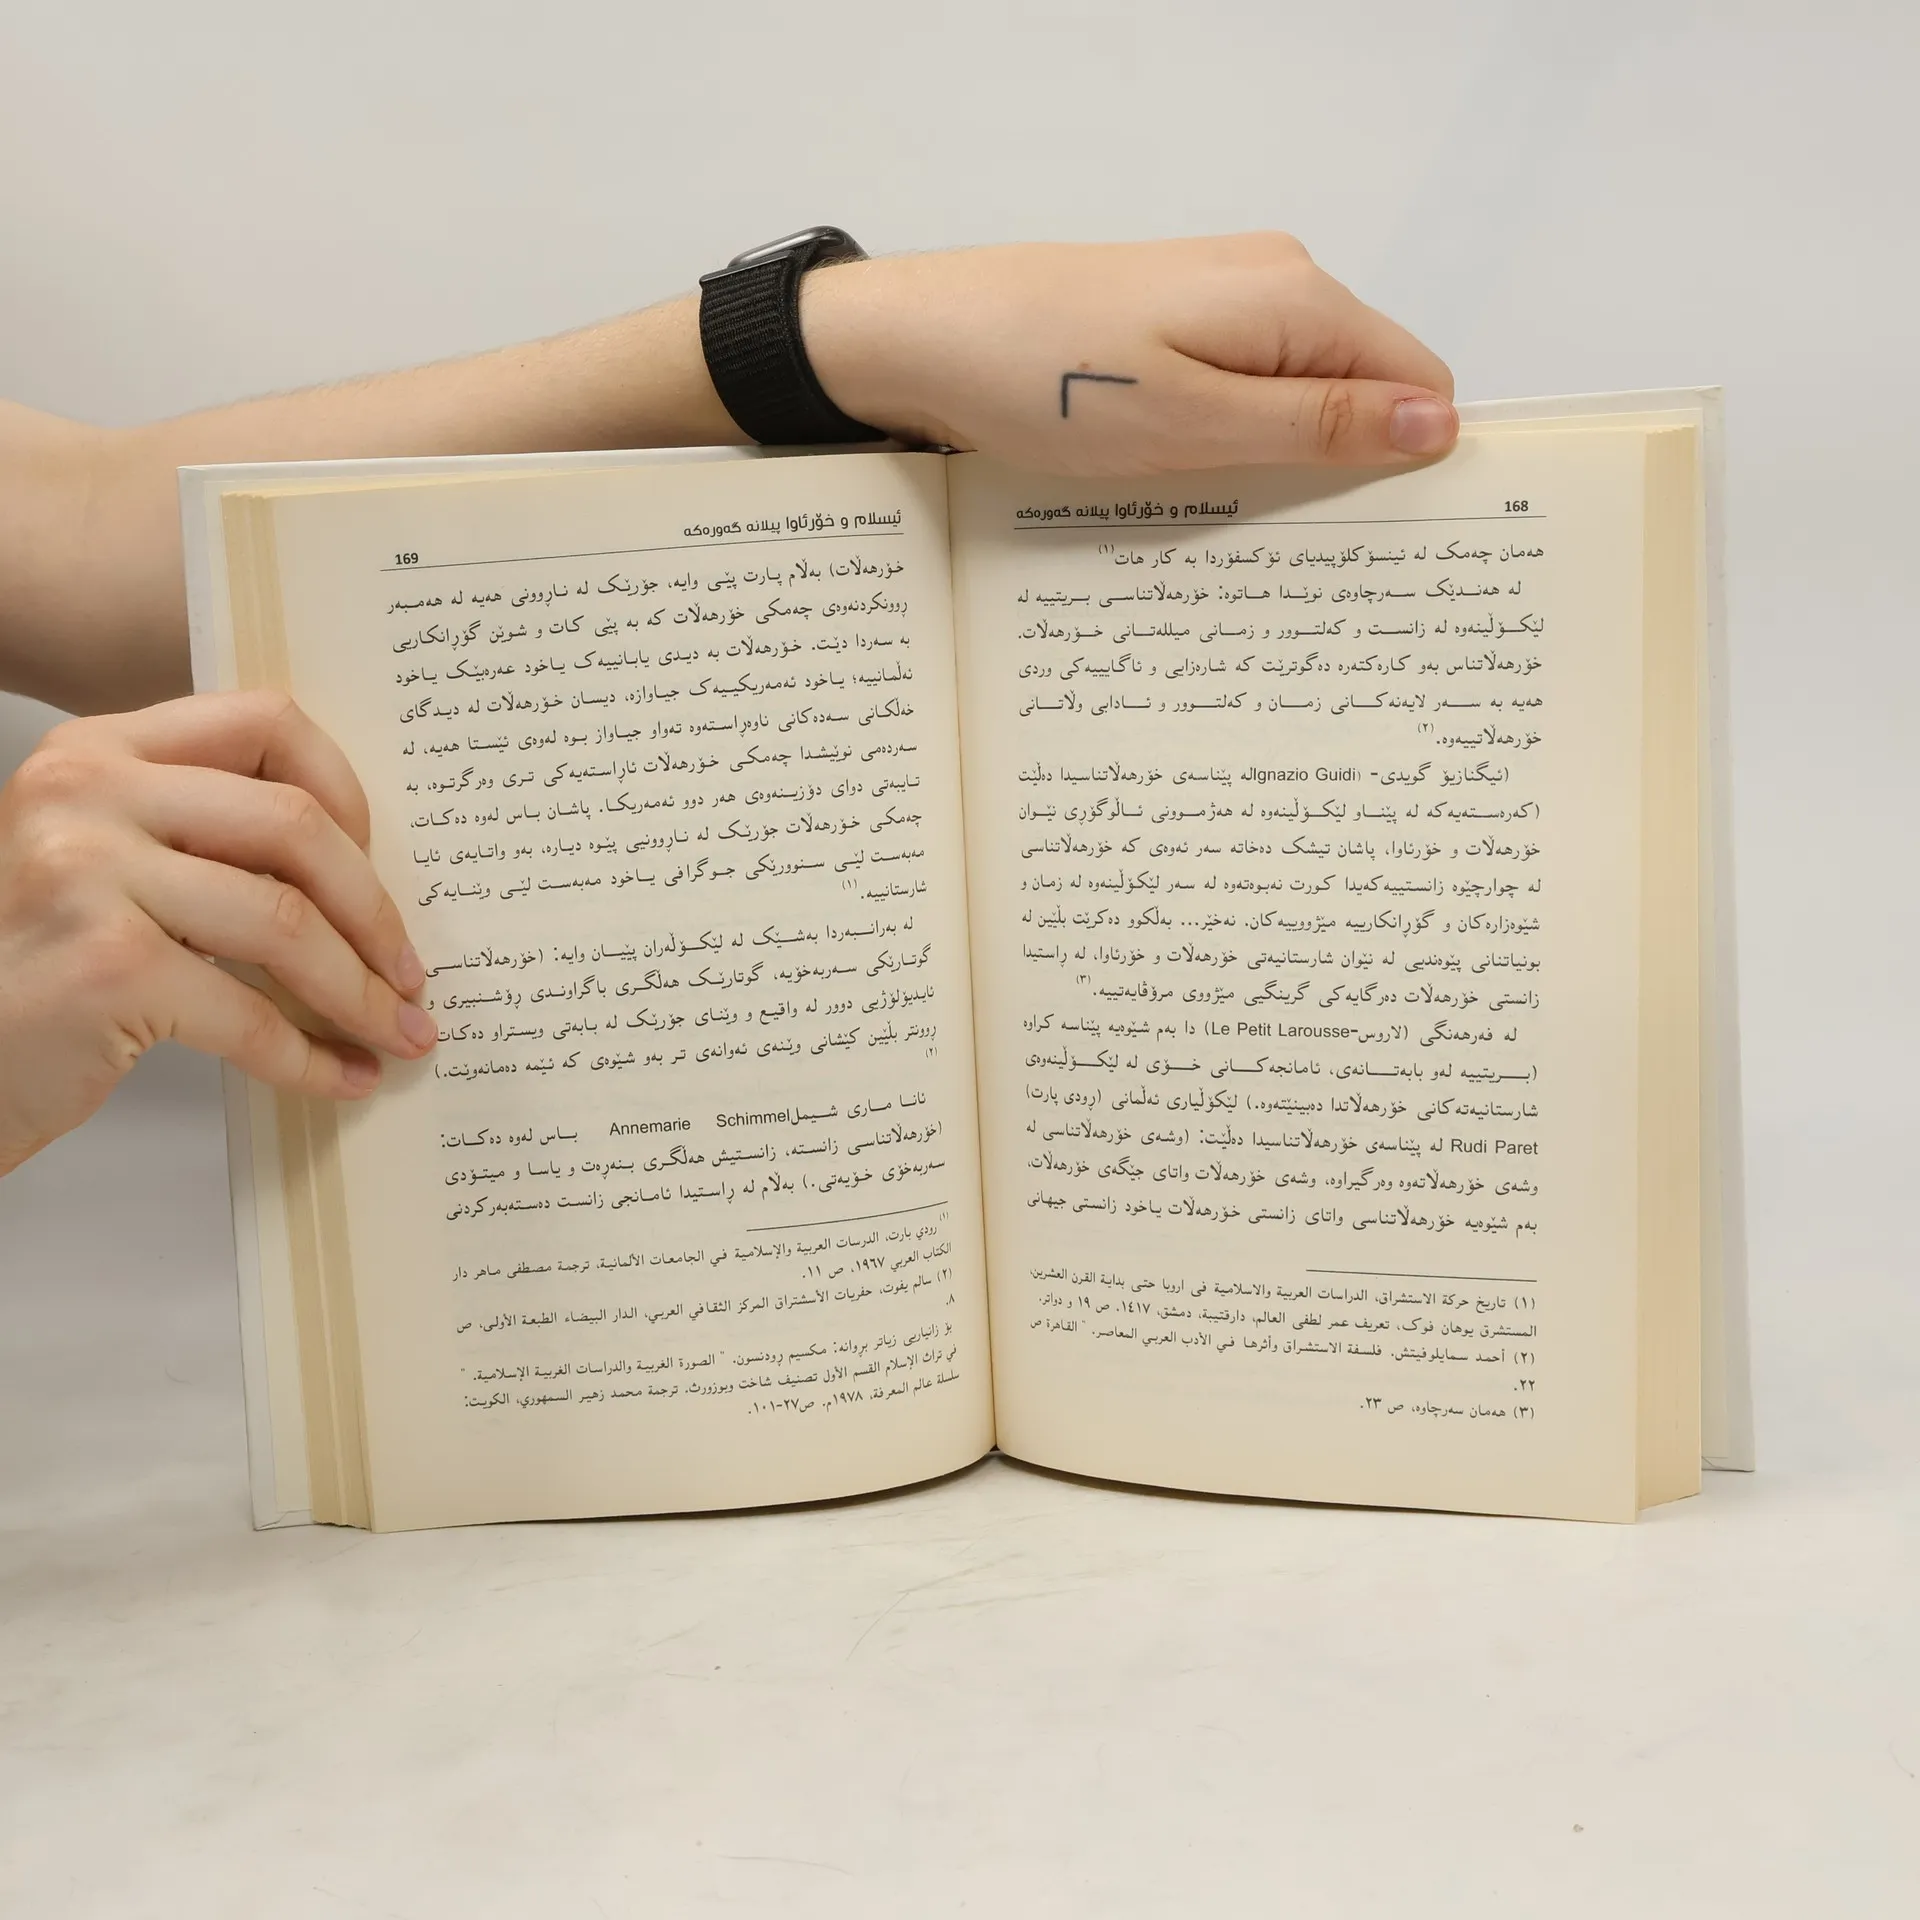 168
ئیسلام و خۆرئاوا پیلانە گەورەکە
هەمان چەمک لە ئینسۆکلۆپیدیای ئۆکسفۆردا بە کار هات(١)
لە هەندێک سەرچاوەی نوێدا هاتوە: خۆرهەڵاتناسی بریتییە لە
لێکۆڵینەوە لە زانست و کەلتوور و زمانی میللەتانی خۆرهەڵات.
خۆرهەڵاتناس بەو کارەکتەرە دەگوترێت کە شارەزایی و ئاگاییییەکی وردی
هەیە بە سەر لایەنەکانی زمان و کەلتوور و ئادابی وڵاتانی
خۆرهەڵاتییەوە.(٢)
(ئیگنازیۆ گویدی- Ignazio Guidi) لە پێناسەی خۆرهەڵاتناسیدا دەڵێت
(کەرەستەیەکە لە پێناو لێکۆڵینەوە لە هەژموونی ئاڵوگۆڕی نێوان
خۆرهەڵات و خۆرئاوا، پاشان تیشک دەخاتە سەر ئەوەی کە خۆرهەڵاتناسی
لە چوارچێوە زانستییەکەیدا کورت نەبوەتەوە لە سەر لێکۆڵینەوە لە زمان و
شێوەزارەکان و گۆڕانکارییە مێژووییەکان. نەخێر... بەڵکوو دەکرێت بڵێین لە
بونیاتنانی پێوەندیی لە نێوان شارستانیەتی خۆرهەڵات و خۆرئاوا، لە ڕاستیدا
زانستی خۆرهەڵات دەرگایەکی گرینگیی مێژووی مرۆڤایەتییە.(٣)
لە فەرهەنگی (لاروس-Le Petit Larousse) دا بەم شێوەیە پێناسە کراوە
(بریتییە لەو بابەتانەی، ئامانجەکانی خۆی لە لێکۆڵینەوەی
شارستانیەتەکانی خۆرهەڵاتدا دەبینێتەوە.) لێکۆڵیاری ئەڵمانی (ڕودی پارت)
Rudi Paret لە پێناسەی خۆرهەڵاتناسیدا دەڵێت: (وشەی خۆرهەڵاتناسی لە
وشەی خۆرهەڵاتەوە وەرگیراوە، وشەی خۆرهەڵات واتای جێگەی خۆرهەڵات،
بەم شێوەیە خۆرهەڵاتناسی واتای زانستی خۆرهەڵات یاخود زانستی جیهانی
(١) تاريخ حركة الاستشراق، الدراسات العربية والاسلامية فى اروبا حتى بداية القرن العشرين،
المستشرق يوهان فوك، تعريف عمر لطفى العالم، دارقتيبة، دمشق، ١٤١٧. ص ١٩ و دواتر.
(٢) أحمد سمايلوفيتش. فلسفة الاستشراق وأثرها في الأدب العربي المعاصر. " القاهرة ص
٢٢.
(٣) هەمان سەرچاوە، ص ٢٣.
ئیسلام و خۆرئاوا پیلانە گەورەکە
169
خۆرهەڵات) بەڵام پارت پێی وایە، جۆرێک لە ناڕوونی هەیە لە هەمبەر
ڕوونکردنەوەی چەمکی خۆرهەڵات کە بە پێی کات و شوێن گۆڕانکاریی
بە سەردا دێت. خۆرهەڵات بە دیدی یابانییەک یاخود عەرەبێک یاخود
ئەڵمانییە؛ یاخود ئەمەریکییەک جیاوازە، دیسان خۆرهەڵات لە دیدگای
خەڵکانی سەدەکانی ناوەڕاستەوە تەواو جیاواز بوە لەوەی ئێستا هەیە، لە
سەردەمی نوێیشدا چەمکی خۆرهەڵات ئاڕاستەیەکی تری وەرگرتوە، بە
تایبەتی دوای دۆزینەوەی هەر دوو ئەمەریکا. پاشان باس لەوە دەکات،
چەمکی خۆرهەڵات جۆرێک لە ناڕوونیی پێوە دیارە، بەو واتایەی ئایا
مەبەست لێی سنوورێکی جوگرافی یاخود مەبەست لێی وێنایەکی
شارستانییە.(١)
لە بەرانبەردا بەشێک لە لێکۆڵەران پێیان وایە: (خۆرهەڵاتناسی
گوتارێکی سەربەخۆیە، گوتارێک هەڵگری باگراوندی ڕۆشنبیری و
ئایدیۆلۆژیی دوور لە واقیع و وێنای جۆرێک لە بابەتی ویستراو دەکات
ڕوونتر بڵێین کێشانی وێنەی ئەوانەی تر بەو شێوەی کە ئێمە دەمانەوێت.)
(٢)
ئانا ماری شیمل Annemarie Schimmel باس لەوە دەکات:
(خۆرهەڵاتناسی زانستە، زانستیش هەڵگری بنەڕەت و یاسا و میتۆدی
سەربەخۆی خۆیەتی.) بەڵام لە ڕاستیدا ئامانجی زانست دەستەبەرکردنی
(١) رودي بارت، الدرسات العربية والإسلامية في الجامعات الألمانية، ترجمة مصطفى ماهر دار
الكتاب العربي ١٩٦٧، ص ١١.
(٢) سالم يفوت، حفريات الأسشتراق المركز الثقافي العربي، الدار البيضاء الطبعة الأولى، ص
٨.
بۆ زانیاریی زیاتر بڕوانە: مکسیم ڕودنسون. " الصورة الغربية والدراسات الغربية الإسلامية. "
في تراث الإسلام القسم الأول تصنيف شاخت وبوزورث. ترجمة محمد زهير السمهوري، الكويت:
سلسلة عالم المعرفة، ١٩٧٨م. ص٢٧-١٠١.